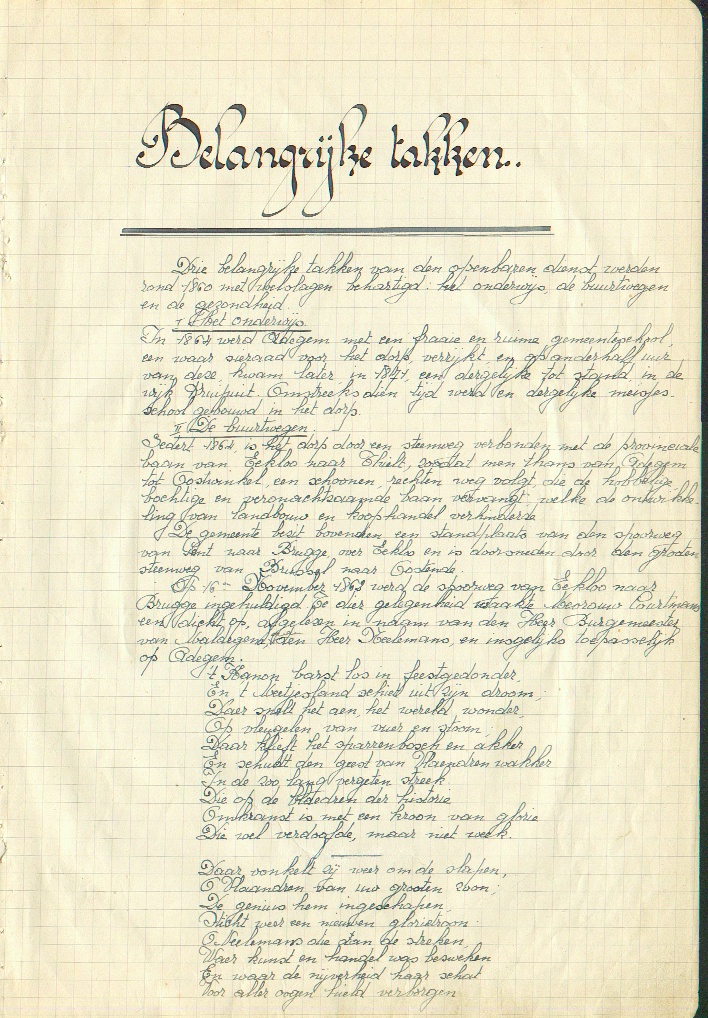 Belangrijke takken..
Drie belangrijke takken van den openbaren dienst werden
rond 1860 met welslagen behartigd: het onderwijs, de buurtwegen
en de gezondheid.
I Het onderwijs.
In 1864 werd Adegem met een fraaie en ruime gemeenteschool,
een waar sieraad voor het dorp verrijkt, en op anderhalf uur
van deze, kwam later, in 1871, een dergelijke tot stand, in de
wijk Kruipuit. Omstreeks dien tijd werd en dergelijke meisjes-
school gebouwd in het dorp.
II De buurtwegen.
Sedert 1864, is het dorp door een steenweg verbonden met de provinciale
baan van Eekloo naar Thielt, zoodat men thans van Adegem
tot Oostwinkel, een schoonen, rechten weg volgt, die de hobbelige
bochtige en veronachtzaamde baan vervangt, welke de ontwikke-
ling van landbouw en koophandel verhinderde
De gemeente bezit bovendien een standplaats van den spoorweg
van Gent naar Brugge over Eeklo en is doorsneden door den grooten
steenweg van Brussel naar Oostende.
Op 16en November 1862 werd de spoorweg van Eekloo naar
Brugge ingehuldigd Te dier gelegenheid maakte Mevrouw Courtmans
een dicht op, afgelezen in naam van den Heer Burgemeester
van Maldegem, den Heer Neelemans, en mogelijks toepasselijk
op Adegem.
't Kanon barst los in feestgedonder,
En 't Meetjesland schiet uit zijn droom;
Daer snelt het aen, het wereld wonder,
Op vleugelen van vuer en stoom,
Daar klieft het sparrenbosch en akker
En schudt den geest van Vlaendren wakker
In de zoo lang vergeten streek
Die op de bladedren der historie
Omkranst is met een kroon van glorie
Die wel verdoofde, maar niet week.
Daar vonkelt zij weer om de slapen,
O Vlaandren van uw grooten zoon;
De genius hem ingeschapen,
Sticht weer een nieuwen glorietroon:
O Neelemans die dan de streken
Waer kunst en handel was besweken
En waar de nijverheid haar schat
Voor aller oogen hield verborgen